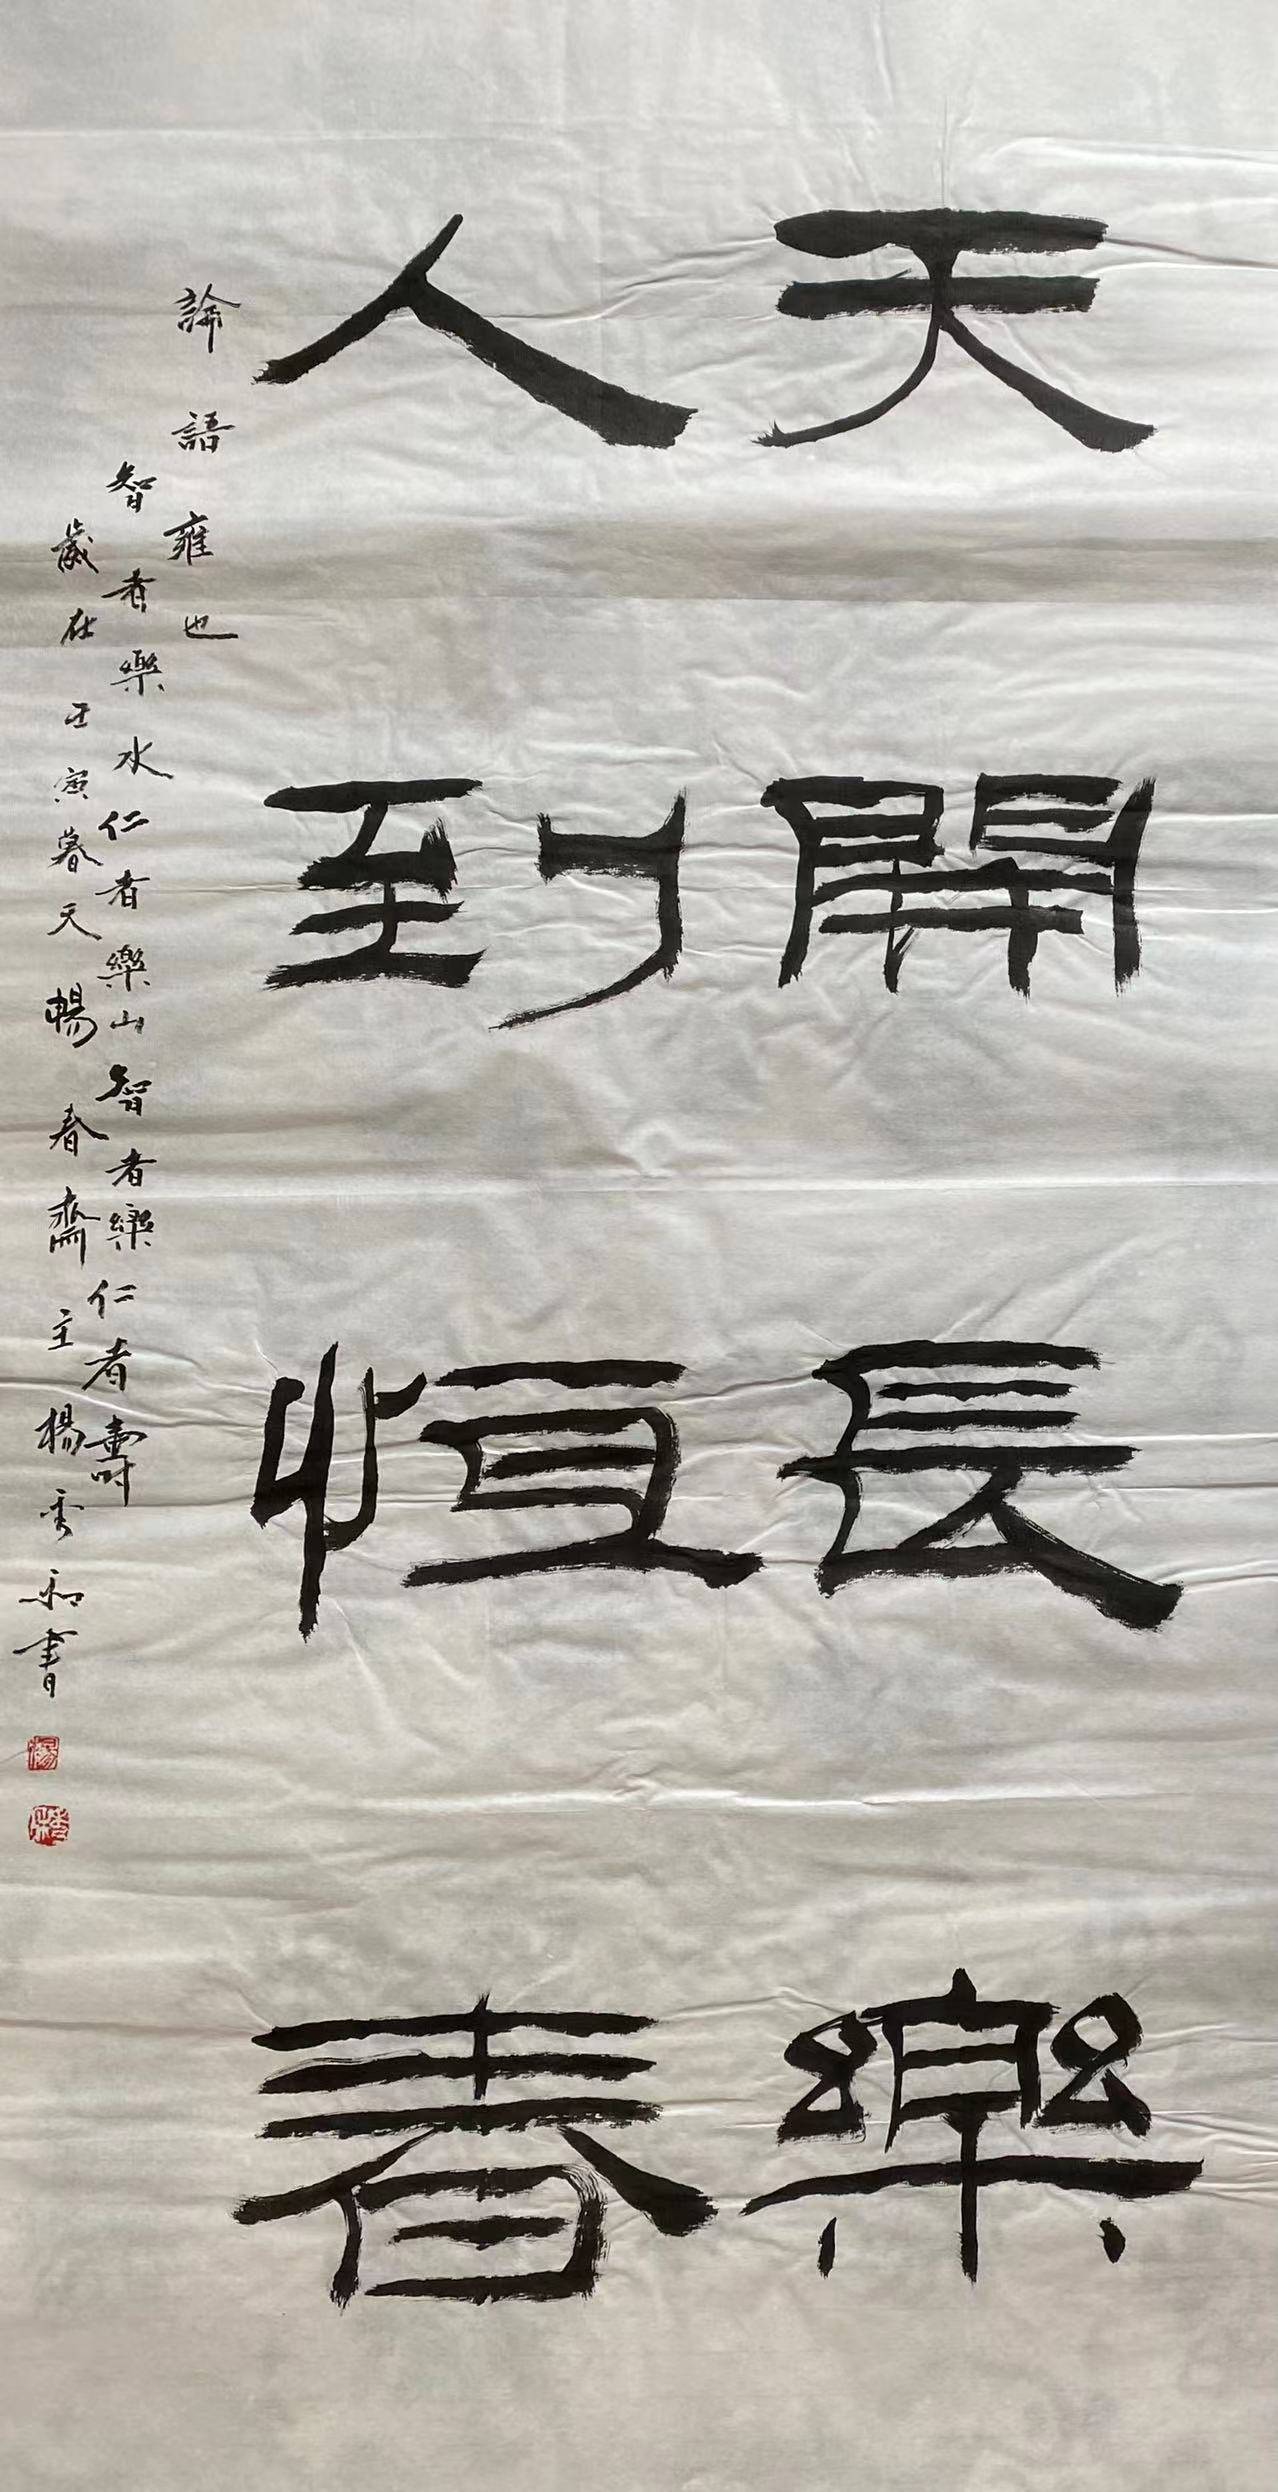 天開長樂
人到恒春
論語雍也
智者樂水仁者樂山智者樂仁者壽
歲在壬寅暮天暢春齋主楊秀和書